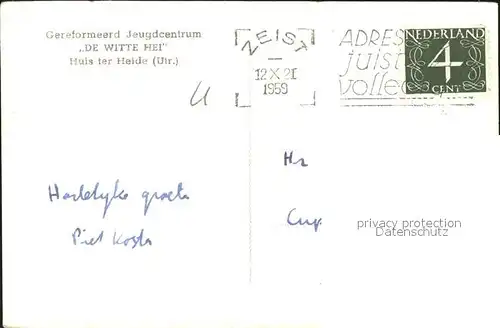 Gereformeerd Jeugdcentrum
„DE WITTE HEI"
Huis ter Heide (Utr.)
ZEIST
12 X 21
1959
ADRES
juist
volle
NEDERLAND
4
CENT
Hartelijke groeten
Piet
privacy protection
Datenschutz